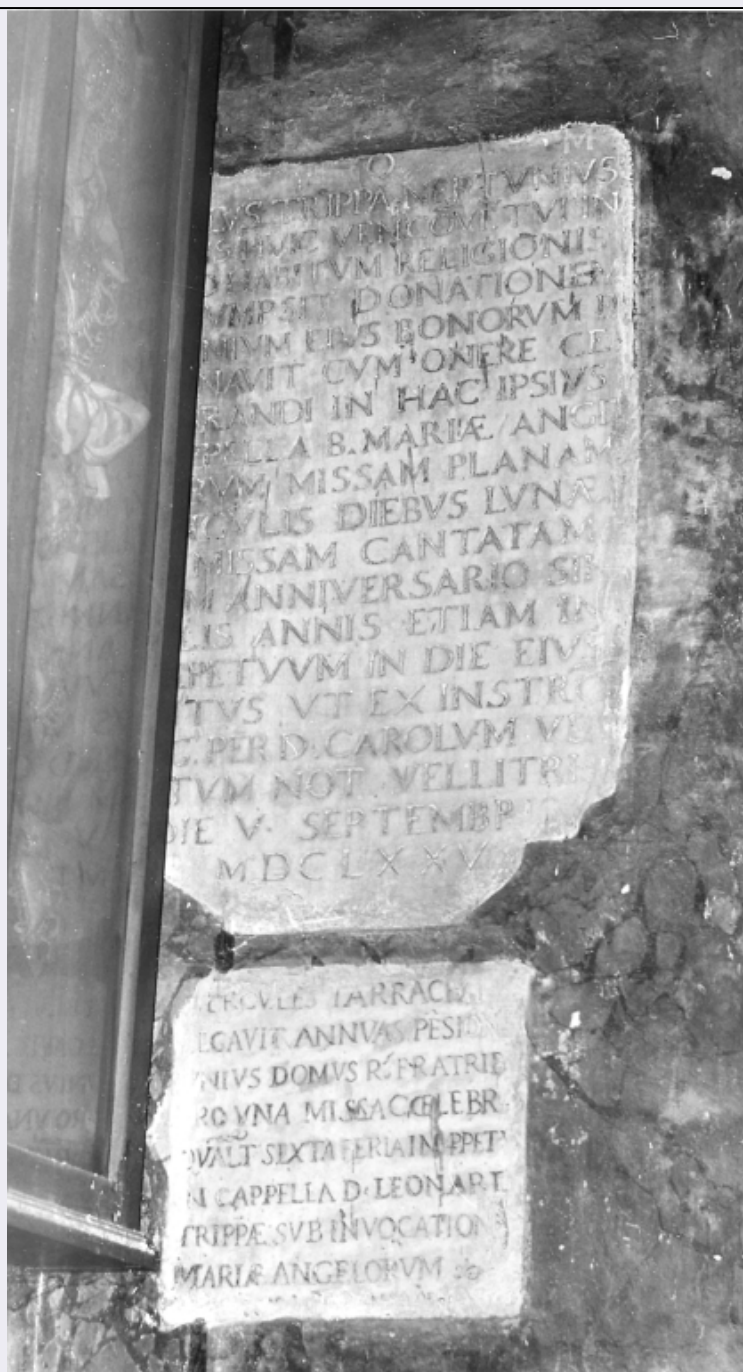 O M
TRIPPA NEPTVNIVS
HVIC VEN CONVETVI IN
HABITVM RELIGIONIS
VMPSIT DONATIONEM
NIVM EIVS BONORVM
NAVIT CVM ONERE CE
RANDI IN HAC IPSIVS
PELLA B. MARIÆ ANGE
RVM MISSAM PLANAM
GVLIS DIEBVS LVNÆ
MISSAM CANTATAM
M ANNIVERSARIO SIN
LIS ANNIS ETIAM IN
PETVVM IN DIE EIVS
TVS VT EX INSTRO
PER D. CAROLVM VE
TVM NOT. VELLITRE
DIE V. SEPTEMBRIS
MDCLXXV
ERCVLES TARRACI
GAVIT ANNVAS PESION
NIVS DOMVS R. FRATRIB
RO VNA MISSA CŒLEBR
QVALT SEXTA FERIA IN PPET
N CAPPELLA D. LEONART
TRIPPÆ SVB INVOCATION
MARIÆ ANGELORVM